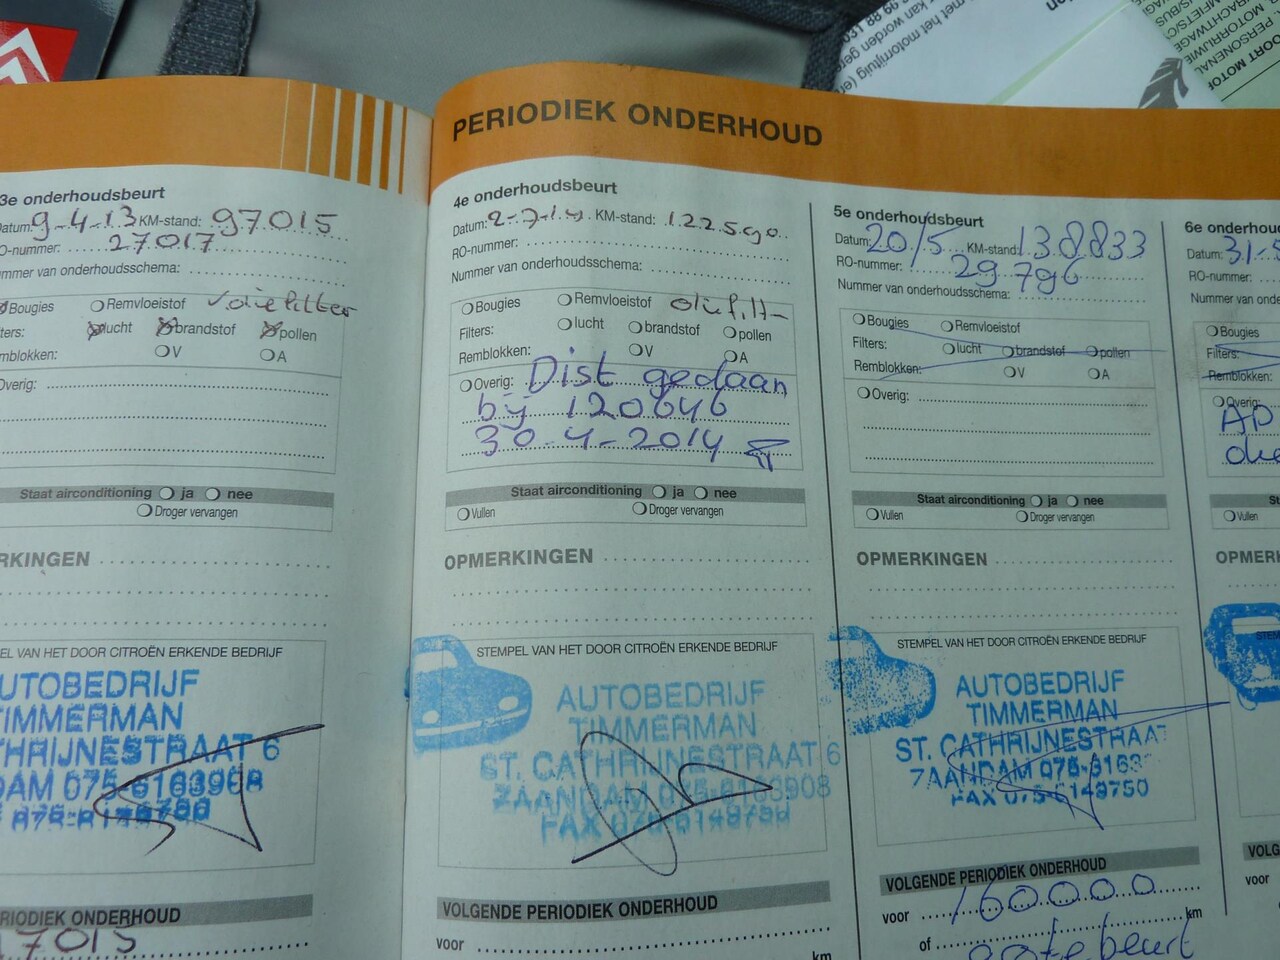 PERIODIEK ONDERHOUD
3e onderhoudsbeurt
Datum: 9-4-13 KM-stand: 97015
RO-nummer: 27017
Nummer van onderhoudsschema:
Bougies Remvloeistof oliefilter
Filters: lucht brandstof pollen
Remblokken: V A
Overig:
Staat airconditioning ja nee
Droger vervangen
OPMERKINGEN
STEMPEL VAN HET DOOR CITROËN ERKENDE BEDRIJF
AUTOBEDRIJF
TIMMERMAN
ST. CATHRIJNESTRAAT 6
ZAANDAM 075-6163908
PERIODIEK ONDERHOUD
4e onderhoudsbeurt
Datum: 2-7-14 KM-stand: 122590
RO-nummer:
Nummer van onderhoudsschema:
Bougies Remvloeistof oliefilt
Filters: lucht brandstof pollen
Remblokken: V A
Overig: Dist gedaan
bij 120646
30-4-2014
Staat airconditioning ja nee
Vullen Droger vervangen
OPMERKINGEN
STEMPEL VAN HET DOOR CITROËN ERKENDE BEDRIJF
AUTOBEDRIJF
TIMMERMAN
ST. CATHRIJNESTRAAT 6
ZAANDAM 075-6163908
FAX 075-6149750
VOLGENDE PERIODIEK ONDERHOUD
voor
km
5e onderhoudsbeurt
Datum: 20/5 KM-stand: 138833
RO-nummer: 29796
Nummer van onderhoudsschema:
Bougies Remvloeistof
Filters: lucht brandstof pollen
Remblokken: V A
Overig:
Staat airconditioning ja nee
Vullen Droger vervangen
OPMERKINGEN
STEMPEL VAN HET DOOR CITROËN ERKENDE BEDRIJF
AUTOBEDRIJF
TIMMERMAN
ST. CATHRIJNESTRAAT
ZAANDAM 075-6163
FAX 075-6149750
VOLGENDE PERIODIEK ONDERHOUD
voor 160000
km
of grote beurt
6e
Datum: 31-
RO-nummer:
Nummer van
Bougies
Filters:
Remblokken:
Overig:
Vullen
voor